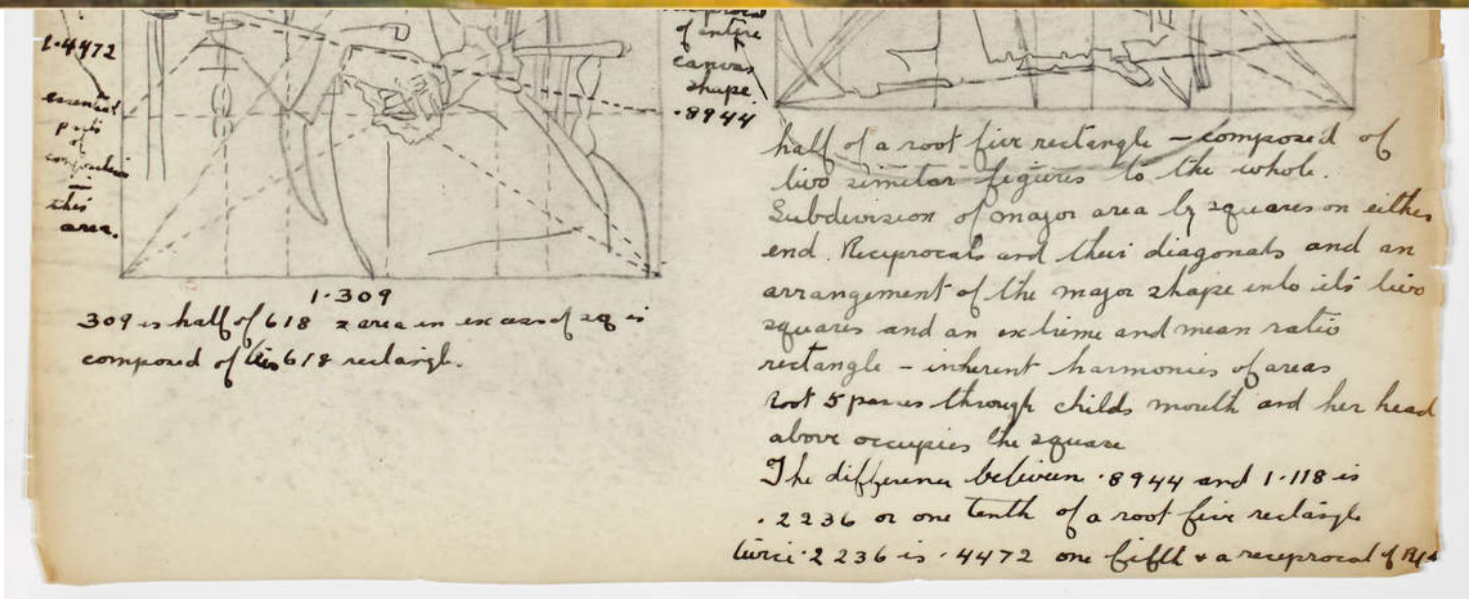 1.4472
essential
parts
of
composition
in
this
area.
of entire
canvas
shape
.8944
1.309
309 is half of 618 & area in excess of sq is
composed of two 618 rectangle.
half of a root five rectangle – composed of
two similar figures to the whole.
Subdivision of major area by squares on either
end. Reciprocals and their diagonals and an
arrangement of the major shape into its two
squares and an extreme and mean ratio
rectangle – inherent harmonies of areas
root 5 passes through childs mouth and her head
above occupies the square
The difference between .8944 and 1.118 is
.2236 or one tenth of a root five rectangle
twice .2236 is .4472 one fifth & a reciprocal of